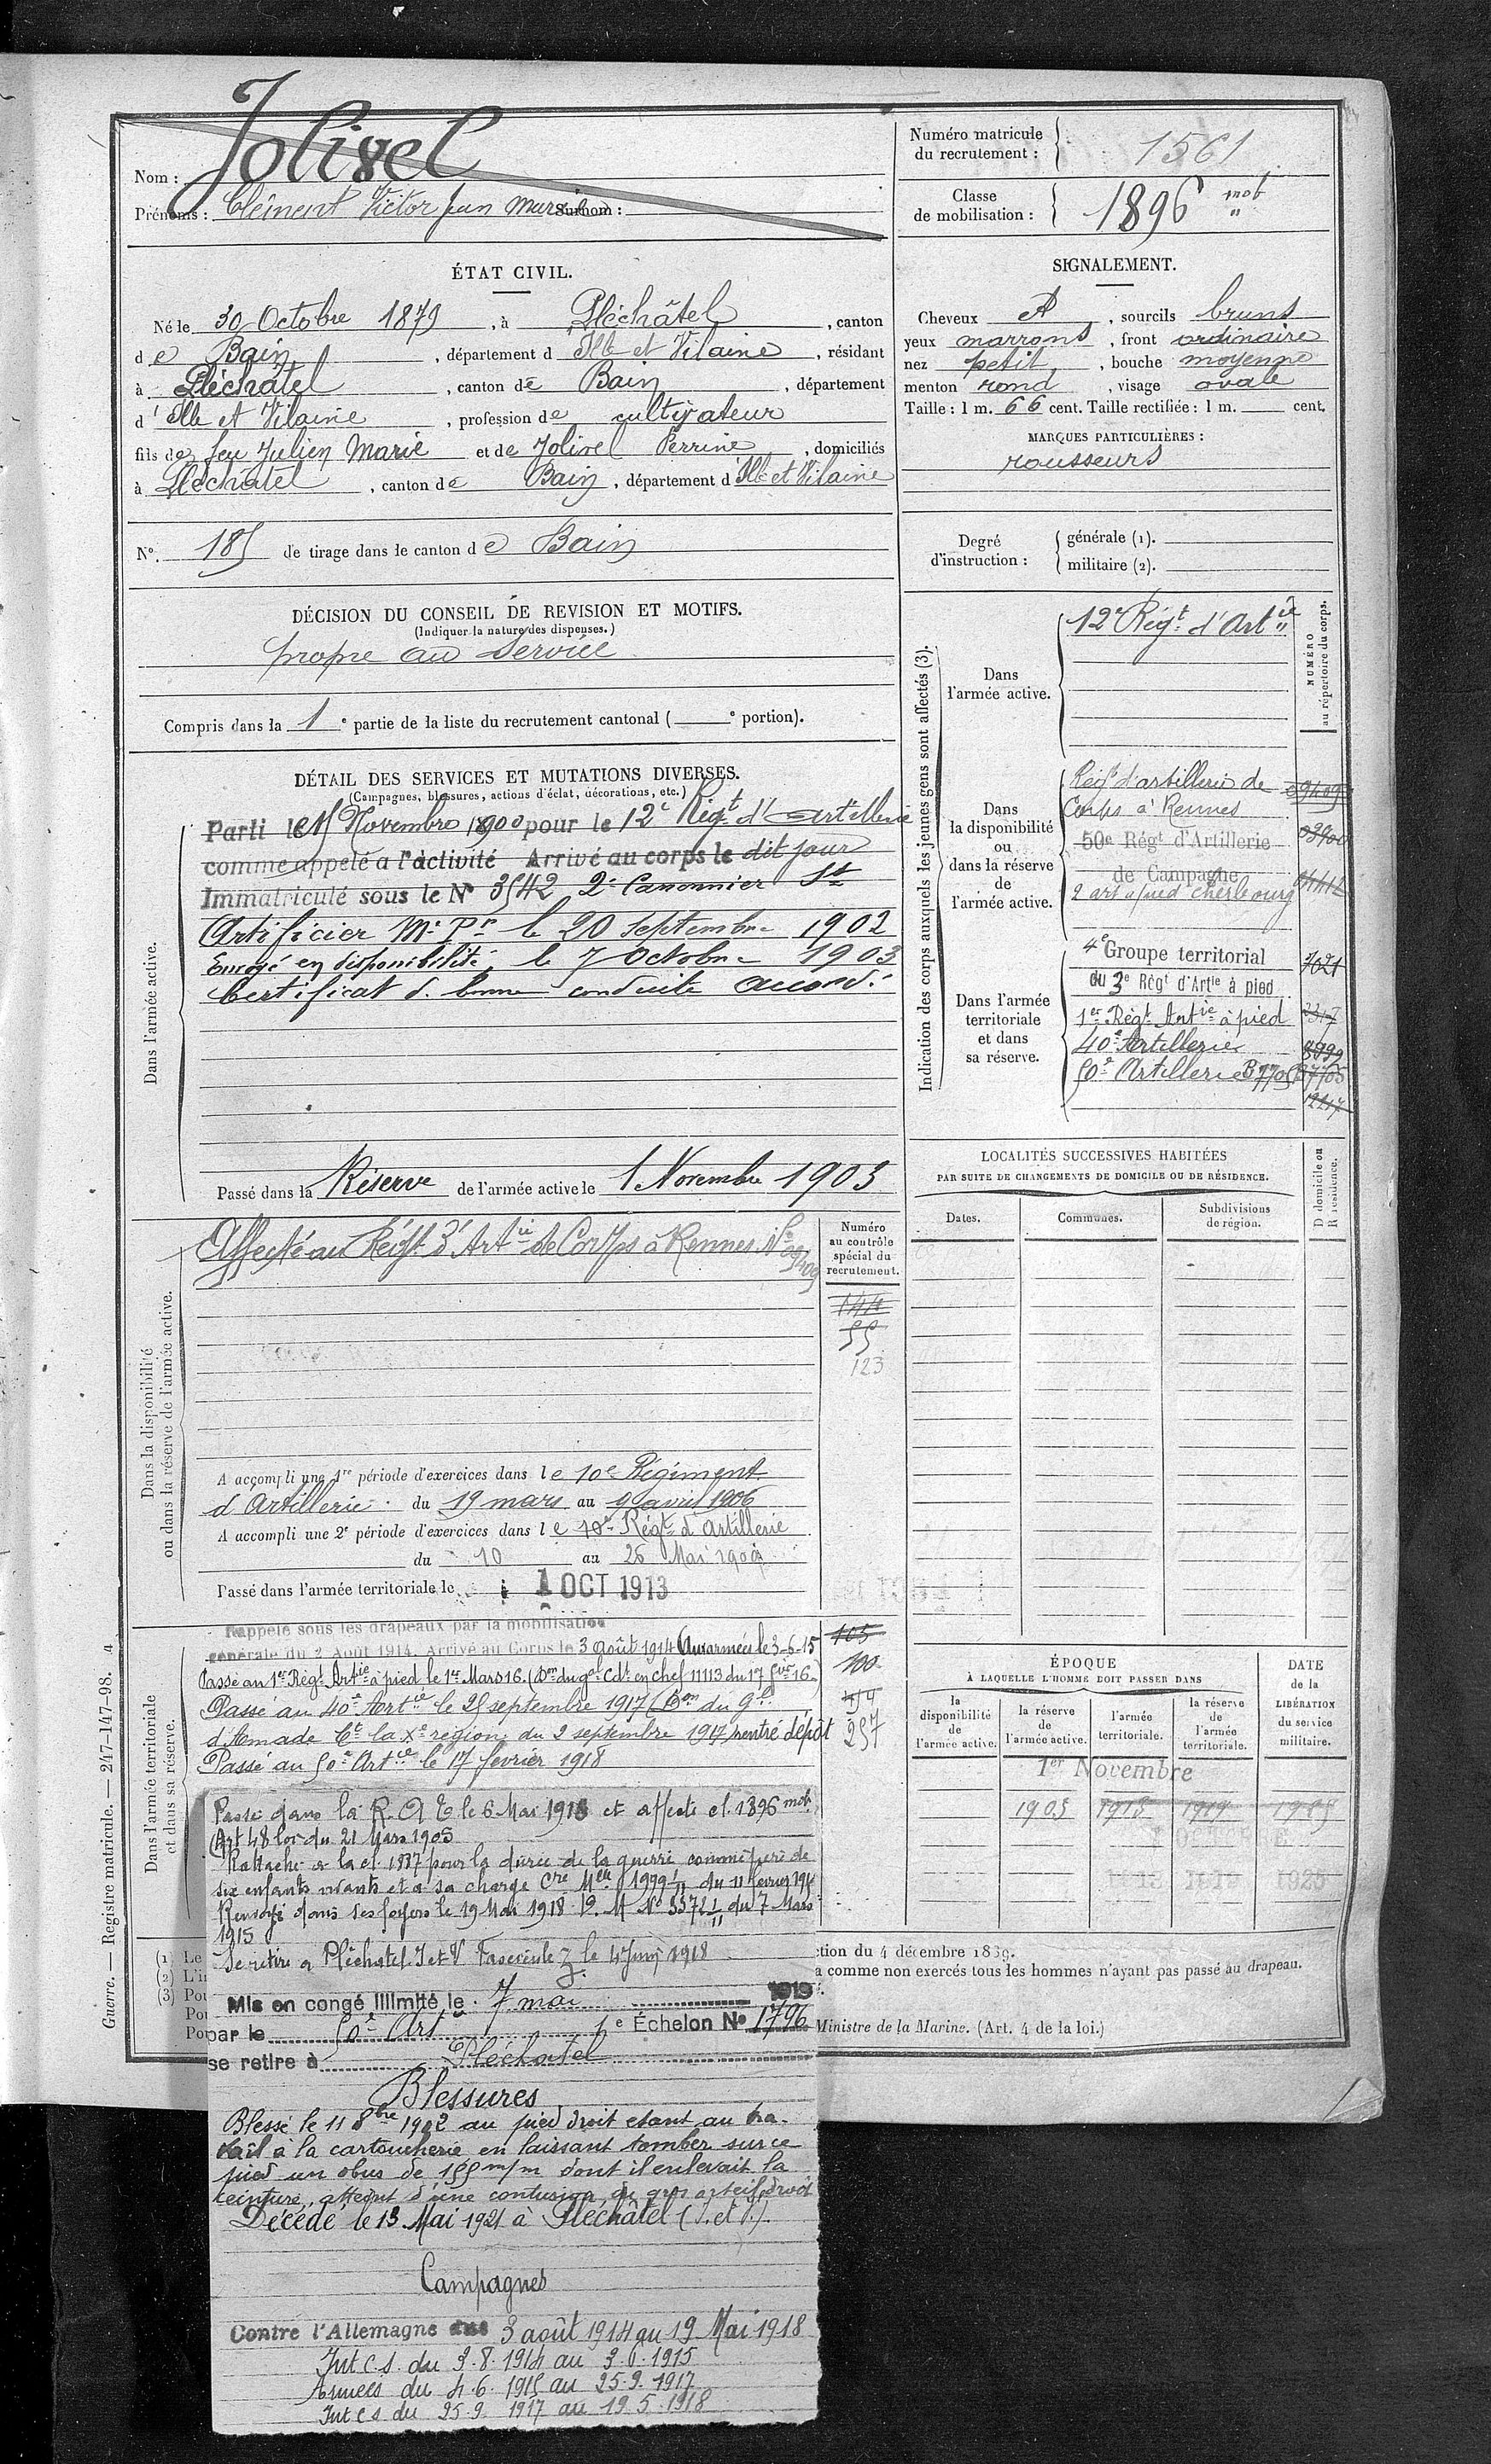 Nom : Jolivel
Prénoms : Clément Victor Jean Marie Surnom :
Numéro matricule
du recrutement : 1561
Classe
de mobilisation : 1896 mob
ÉTAT CIVIL.
Né le 30 Octobre 1879, à Pléchâtel, canton
de Bain, département d Ille et Vilaine, résidant
à Pléchâtel, canton de Bain, département
d' Ille et Vilaine, profession de cultivateur
fils de feu Julien Marie et de Jolivel Perrine, domiciliés
à Pléchâtel, canton de Bain, département d' Ille et Vilaine
N° 185 de tirage dans le canton de Bain
SIGNALEMENT.
Cheveux et, sourcils bruns
yeux marrons, front ordinaire
nez petit, bouche moyenne
menton rond, visage ovale
Taille : 1 m. 66 cent. Taille rectifiée : 1 m. cent.
MARQUES PARTICULIÈRES :
rousseurs
Degré
d'instruction :
générale (1).
militaire (2).
DÉCISION DU CONSEIL DE REVISION ET MOTIFS.
(Indiquer la nature des dispenses.)
propre au service
Compris dans la 1e partie de la liste du recrutement cantonal ( e portion).
DÉTAIL DES SERVICES ET MUTATIONS DIVERSES.
(Campagnes, blessures, actions d'éclat, décorations, etc.)
Dans l'armée active.
Parti le 15 Novembre 1900 pour le 12e Régt d'Artillerie
comme appelé à l'activité Arrivé au corps le dit jour
Immatriculé sous le N° 3542 2e Canonnier St
Artificier Mi Pn le 20 septembre 1902
Envoyé en disponibilité le 7 Octobre 1903
Certificat de bonne conduite accordé
Passé dans la Réserve de l'armée active le 1 Novembre 1903
Indication des corps auxquels les jeunes gens sont affectés (3).
NUMÉRO
au répertoire du corps.
Dans
l'armée active.
12e Régt d'Artie
Dans
la disponibilité
ou
dans la réserve
de
l'armée active.
Régt d'artillerie de
Corps à Rennes
50e Régt d'Artillerie
de Campagne
2 art à pied Cherbourg
09409
03900
Dans l'armée
territoriale
et dans
sa réserve.
4e Groupe territorial
du 3e Régt d'Artie à pied
1er Régt Artie à pied
40e Artillerie
50e Artillerie B 7705
7021
8999
12217
Dans la disponibilité
ou dans la réserve de l'armée active.
Affecté au Régt d'Artie de Corps à Rennes No 09409
Numéro
au contrôle
spécial du
recrutement.
144
55
123
A accompli une 1re période d'exercices dans le 10e Régiment
d'Artillerie du 19 mars au 9 avril 1906
A accompli une 2e période d'exercices dans le 10e Régt d'Artillerie
du 10 au 26 Mai 1909
Passé dans l'armée territoriale le 1 OCT 1913
LOCALITÉS SUCCESSIVES HABITÉES
PAR SUITE DE CHANGEMENTS DE DOMICILE OU DE RÉSIDENCE.
Dates.
Communes.
Subdivisions
de région.
D domicile ou
R résidence.
Dans l'armée territoriale
et dans sa réserve.
Rappelé sous les drapeaux par la mobilisation
générale du 2 Août 1914. Arrivé au Corps le 3 août 1914 Aux armées le 3-6-15
Passé au 1er Régt Artie à pied le 1er Mars 16. (Don du gal Cdt en chef 11113 du 17 fvr 16)
Passé au 40e Artie le 25 septembre 1917 (Don du gal
d'Amade Ct la Xe région du 2 septembre 1917) rentré dépôt
Passé au 50e Artie le 17 février 1918
105
100
257
ÉPOQUE
À LAQUELLE L'HOMME DOIT PASSER DANS
la
disponibilité
de
l'armée active.
la réserve
de
l'armée active.
l'armée
territoriale.
la réserve
de
l'armée
territoriale.
DATE
de la
LIBÉRATION
du service
militaire.
1er Novembre
1903 1913 1919
1913 1919 1925
Passé dans la R.A.T. le 6 Mai 1918 et affecté cl. 1896 mob.
Art 48 loi du 21 Mars 1905
Rattaché à la cl. 1887 pour la durée de la guerre comme père de
six enfants vivants et à sa charge Cre Mlle 1999 1/11 du 11 février 19
Renvoyé dans ses foyers le 19 Mai 1918 D. M No 5572 1/11 du 7 Mars
1915
Se retire à Pléchatel I et V Fascicule Z le 4 Juin 1918
Mis en congé illimité le 7 mai 1919
par le 50e Art e Échelon No 1796
se retire à Pléchatel
Blessures
Blessé le 11 8bre 1902 au pied droit étant au tra-
vail à la cartoucherie en laissant tomber sur ce
pied un obus de 155 m/m dont il enlevait la
ceinture, atteint d'une contusion du gros orteil droit
Décédé le 13 Mai 1921 à Pléchâtel (I. et V.).
Campagnes
Contre l'Allemagne du 3 août 1914 au 19 Mai 1918
Int C.S. du 3.8.1914 au 3.6.1915
Armées du 4.6.1915 au 25.9.1917
Int C S du 25.9.1917 au 19.5.1918
(1) Le
(2) L'in
(3) Pou
Pou
Pou
ction du 4 décembre 1889.
a comme non exercés tous les hommes n'ayant pas passé au drapeau.
Ministre de la Marine. (Art. 4 de la loi.)
Guerre. — Registre matricule. — 247-147-98. 4